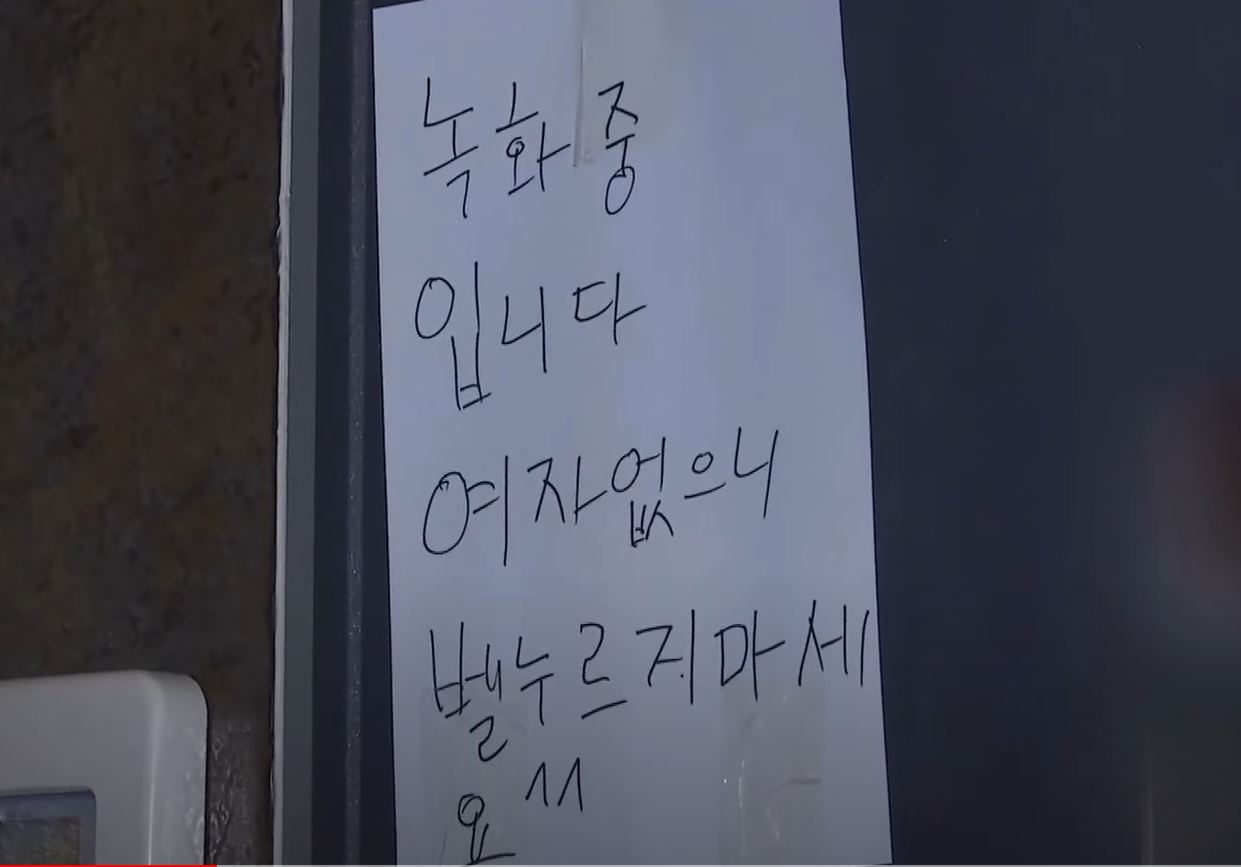 녹화중
입니다
여자없으니
벨누르지마세
요^^